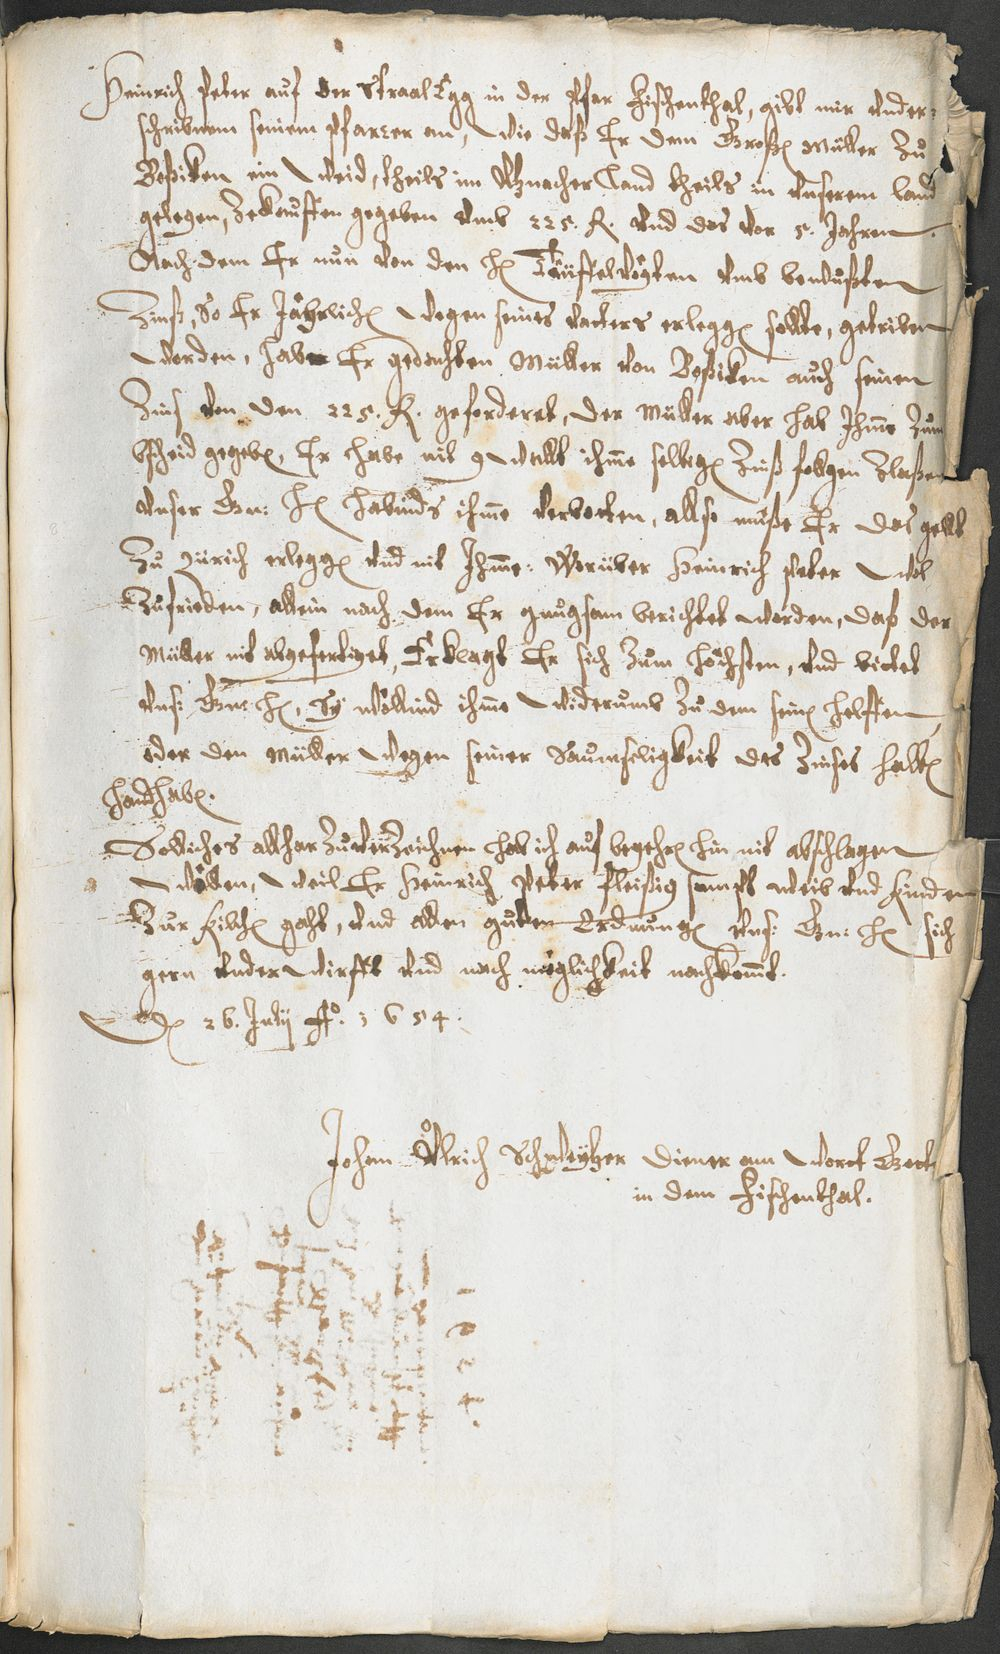 Heinrich Peter auf der Straal Egg in der Pfar Fischenthal, gibt mir under-
schribnem seinem Pfarrer an, wie daß Er dem Großen Müller zu
Boßiken ein Weid, theils im Utznacher Land theils in unserem land
gelegen, zekauffen gegeben umb 225. fl. und das vor 5. Jahren.
Nach dem Er nun von den Hn umb bewußten
Zinß, So Er Jährlichen wegen seines vatters erleggen sollte, getriben
worden, habe Er gedachten Müller von Boßiken auch seinen
Zins von den 225. fl. geforderet, der Müller aber hab Ihme zum
bscheid gegeben, Er habe nit gwallt ihme selbigen Zinß folgen zlaßen
unser Gn: Hn habinds ihme verbotten, allso müße Er das gellt
zu Zürich erleggen und nit Ihme: Worüber Heinrich Peter wol
zufrieden, allein nach dem Er gnugsam berichtet worden, daß der
Müller nit abgefertiget, Erklagt Er sich zum höchsten, und bittet
uns: Gn: Hn, Sy wöllind ihme widerumb zu dem seinen helffen,
oder den Müller wegen seiner Saumseligkeit des Zinses halben
handhaben.
Sölliches allhar zuverzeichnen hab ich auf begehren hin nit abschlagen
wöllen, weil Er Heinrich Peter fleißig sampt weib und kinden
zur kilchen gaht, und allen guten Ordnungen uns: Gn: Hn sich
gern underwirfft und nach müglichkeit nachkommt.
Den 26. Julij Ao. 1654.
Johan Ulrich Schweytzer diener am wort Gottes
in dem Fischenthal.